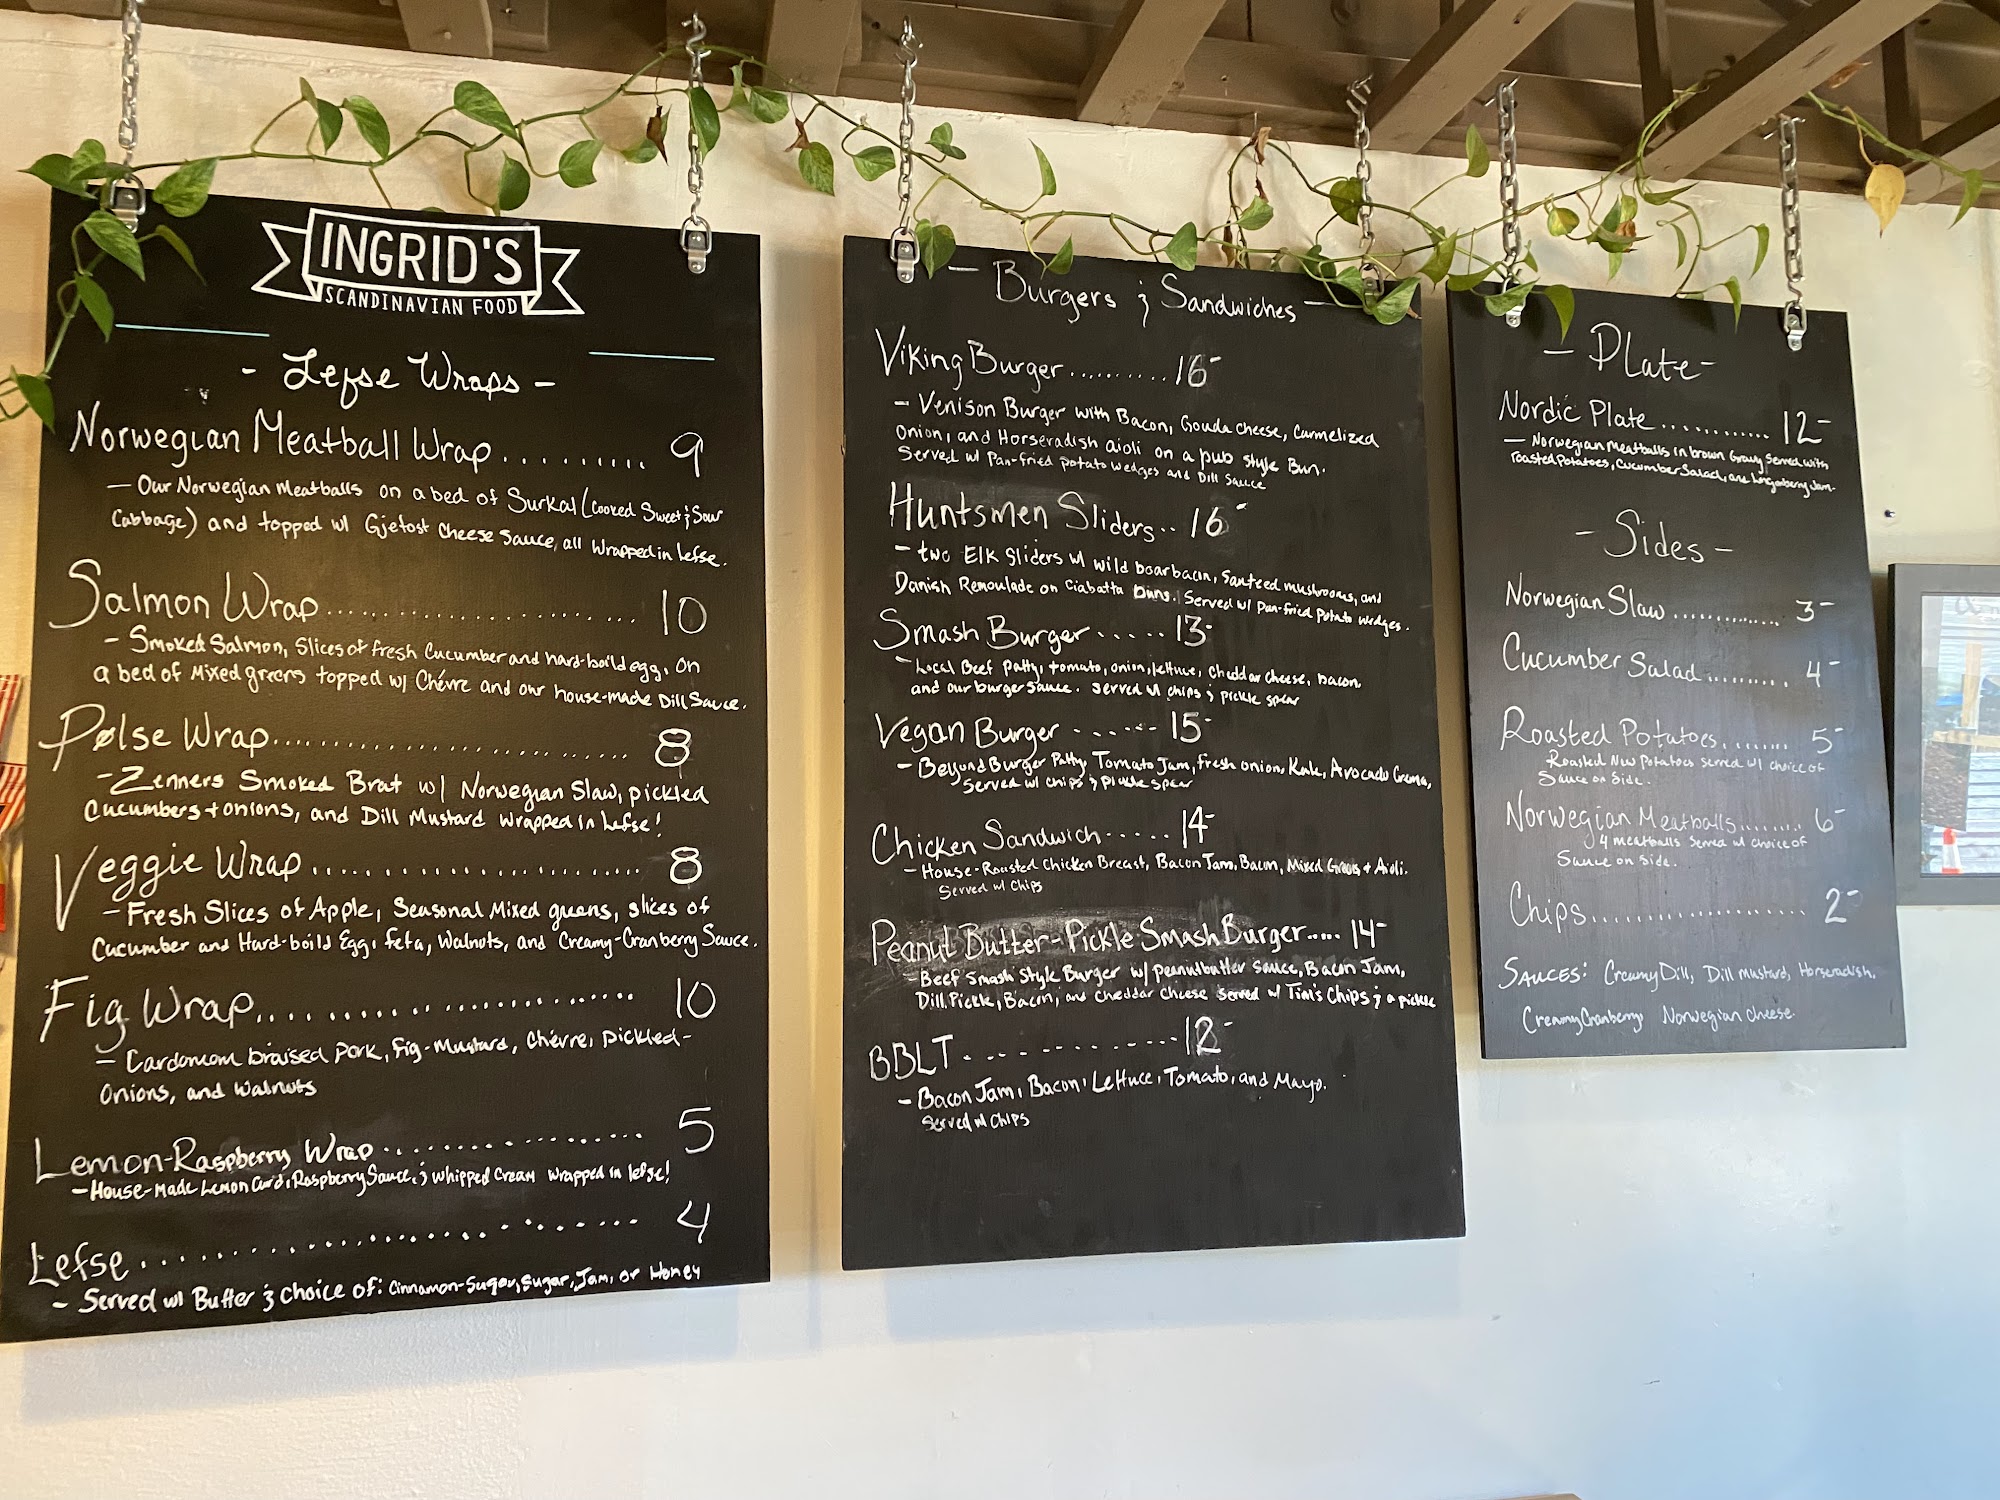 INGRID'S
SCANDINAVIAN FOOD
- Lefse Wraps -
Norwegian Meatball Wrap......... 9
- Our Norwegian Meatballs on a bed of Surkal (cooked Sweet & Sour
Cabbage) and topped w/ Gjetost Cheese Sauce, all wrapped in Lefse.
Salmon Wrap........................... 10
- Smoked Salmon, Slices of fresh Cucumber and hard-boild egg, on
a bed of Mixed greens topped w/ Chévre and our house-made Dill Sauce.
Pølse Wrap........................... 8
- Zenners Smoked Brat w/ Norwegian Slaw, pickled
Cucumbers + onions, and Dill Mustard wrapped in Lefse!
Veggie Wrap........................ 8
- Fresh Slices of Apple, Seasonal Mixed greens, slices of
Cucumber and Hard-boild Egg, feta, Walnuts, and Creamy-Cranberry Sauce.
Fig Wrap........................... 10
- Cardamom braised pork, Fig-Mustard, Chévre, pickled-
Onions, and walnuts
Lemon-Raspberry Wrap.................. 5
- House-Made Lemon Curd, Raspberry Sauce, & whipped Cream wrapped in lefse!
Lefse.............................. 4
- Served w/ Butter & choice of: Cinnamon-Sugar, Sugar, Jam, or Honey
- Burgers & Sandwiches -
Viking Burger.......... 16-
- Venison Burger with Bacon, Gouda cheese, Carmelized
Onion, and Horseradish aioli on a pub style Bun.
Served w/ Pan-fried potato wedges and Dill Sauce
Huntsmen Sliders.. 16-
- two Elk Sliders w/ wild boar bacon, Sauteed mushrooms, and
Danish Remoulade on Ciabatta Buns. Served w/ Pan-fried Potato wedges.
Smash Burger...... 13-
- Local Beef Patty, tomato, onion, lettuce, cheddar cheese, bacon,
and our burger sauce. Served w/ chips & pickle spear
Vegan Burger ....... 15-
- Beyond Burger Patty, Tomato Jam, fresh onion, Kale, Avocado Crema,
Served w/ chips & pickle spear
Chicken Sandwich...... 14-
- House-Roasted Chicken Breast, Bacon Jam, Bacon, Mixed Greens + Aioli.
Served w/ Chips
Peanut Butter-Pickle Smash Burger..... 14-
- Beef Smash Style Burger w/ peanutbutter sauce, Bacon Jam,
Dill Pickle, Bacon, and cheddar cheese served w/ Tim's Chips & a pickle
BBLT............... 12-
- Bacon Jam, Bacon, Lettuce, Tomato, and Mayo.
Served w/ Chips
- Plate -
Nordic Plate............ 12-
- Norwegian Meatballs in brown Gravy served with
roasted potatoes, Cucumber Salad, and lingonberry Jam.
- Sides -
Norwegian Slaw............. 3-
Cucumber Salad......... 4-
Roasted Potatoes........ 5-
Roasted New Potatoes served w/ choice of
Sauce on Side.
Norwegian Meatballs........ 6-
4 meatballs served w/ choice of
Sauce on side.
Chips....................... 2-
SAUCES: Creamy Dill, Dill mustard, Horseradish,
Creamy Cranberry Norwegian cheese.